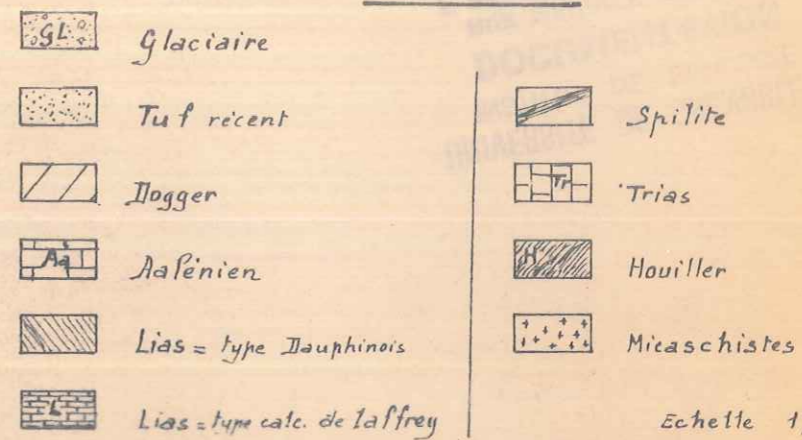 GL Glaciaire
Tuf récent
Dogger
Aa Aalénien
Lias = type Dauphinois
L Lias = type calc. de Laffrey
Spilite
Tr Trias
H Houiller
Micaschistes
Echelle 1